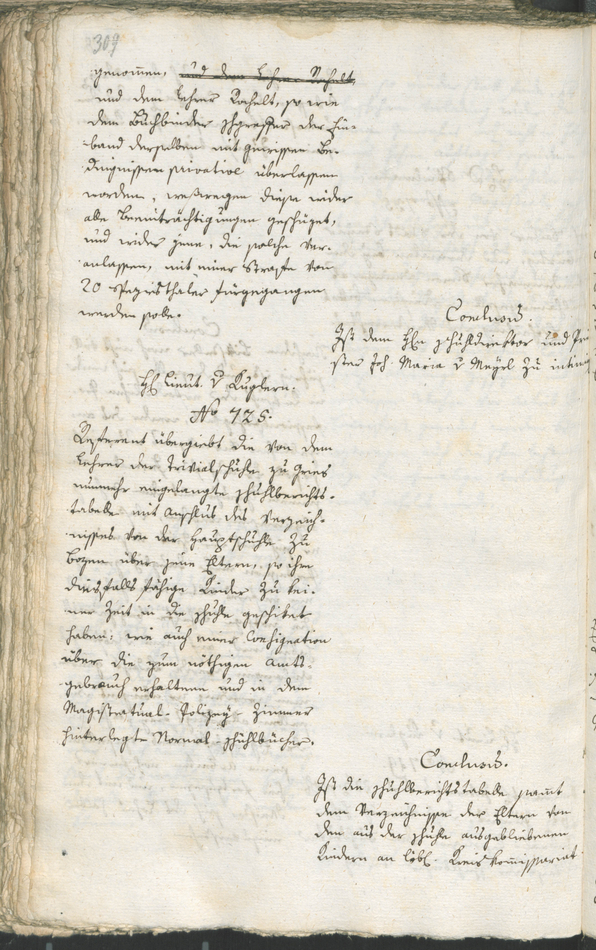 309
genom̄en, und dem Lehrer Rochelt,
und dem Lehrer Rochelt, so wie
dem Buchbinder der Ein-
band derselben mit gewissen Be-
dingnissen privative überlassen
worden, weßwegen diese wider
alle Beeinträchtigungen geschüzet,
und wider jene, die solche ver-
anlassen, mit einer Strafe von
20 Speziesthaler fürgegangen
werden solle.
Conclusum.
Ist dem Hℓn Schuldirektor und
ster Joh. Maria v Mayrl zu
H Lieut. v Kuglern.
No 725.
Referent übergiebt die von dem
Lehrer der Trivialschuhle zu Gries
nunmehr eingelangte Schuhlberichts-
tabelle mit Anschlus des Verzeich-
nisses von der Hauptschuhle zu
Bozen über jene Eltern, so ihre
diesfalls fähige Kinder zu kei-
ner Zeit in die Schuhle geschiket
haben; wie auch einer Consignation
über die zum nöthigen Amts-
gebrauch erhaltene und in dem
Magistratual-Polizey-Zimmer
hinterlegte Normal-Schuhlbücher.
Conclusum.
Ist die Schuhlberichtstabelle samt
dem Verzeichnisse der Eltern von
den aus der Schuhle ausgebliebenen
Kindern an löbl. Kreiskommissariat